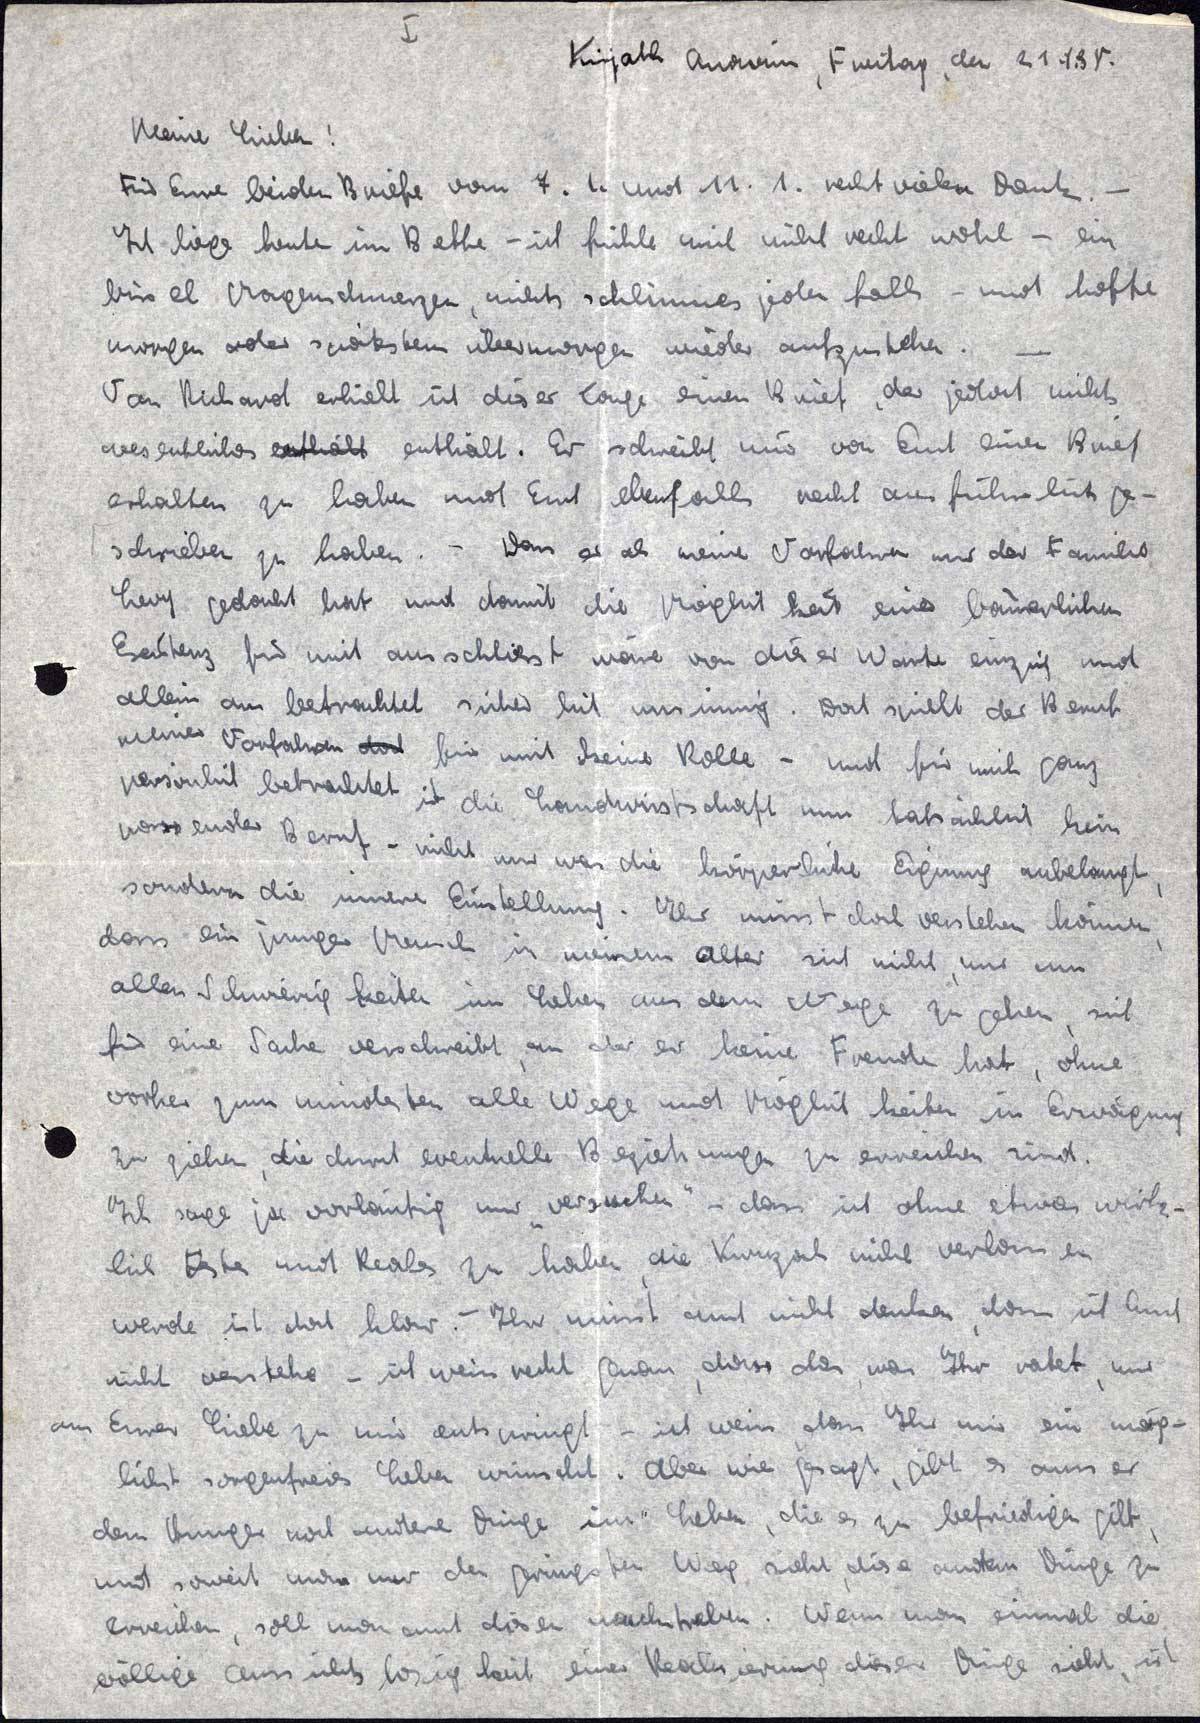 I
Kirjath Anavim, Freitag, den 21.1.38.
Meine Lieben!
Für Eure beiden Briefe vom 7. 1. und 11. 1. recht vielen Dank. —
Ich liege heute im Bette – ich fühle mich nicht recht wohl – ein
bissel Magenschmerzen, nichts schlimmes jeden falls – und hoffe
morgen oder spätestens übermorgen wieder aufzustehen. —
Von Richard erhielt ich dieser Tage einen Brief, der jedoch nichts
wesentliches enthält enthält. Er schreibt mir von Euch einen Brief
erhalten zu haben und Euch ebenfalls recht ausführlich ge-
schrieben zu haben. – Dass er als meine Vorfahren nur der Familie
Levy gedacht hat und damit die Möglichkeit eines bäuerlichen
Existenz für mich ausschliesst wäre von dieser Warte einzig und
allein aus betrachtet sicherlich unsinnig. Doch spielt der Beruf
meiner Vorfahren für mich keine Rolle – und für mich ganz
persönlich betrachtet ist die Landwirtschaft nun tatsächlich kein
passender Beruf – nicht nur was die körperliche Eignung anbelangt,
sondern die innere Einstellung. Ihr müsst doch verstehen können,
dass ein junger Mensch in meinem Alter sich nicht, nur um
allen Schwierigkeiten im Leben aus dem Wege zu gehen, sich
für eine Sache verschreibt, an der er keine Freude hat, ohne
vorher zum mindesten alle Wege und Möglichkeiten in Erwägung
zu ziehen, die durch eventuelle Beziehungen zu erreichen sind.
Ich sage ja vorläufig nur „versuchen“ – dass ich ohne etwas wirk-
lich Festes und Reales zu haben, die Kwuzah nicht verlassen
werde ist doch klar. – Ihr müsst auch nicht denken, dass ich Euch
nicht verstehe – ich weiss recht genau, dass das, was Ihr ratet, nur
aus Eurer Liebe zu mir entspringt – ich weiss dass Ihr mir ein mög-
lichst sorgenfreies Leben wünscht. Aber wie gesagt, gibt es ausser
dem Hunger noch andere Dinge im Leben, die es zu befriedigen gilt,
und soweit man nur den geringsten Weg sieht, diese andern Dinge zu
erreichen, soll man auch diesen nachstreben. Wenn man einmal die
völlige Aussichtslosigkeit einer Realisierung dieser Dinge sieht, ist